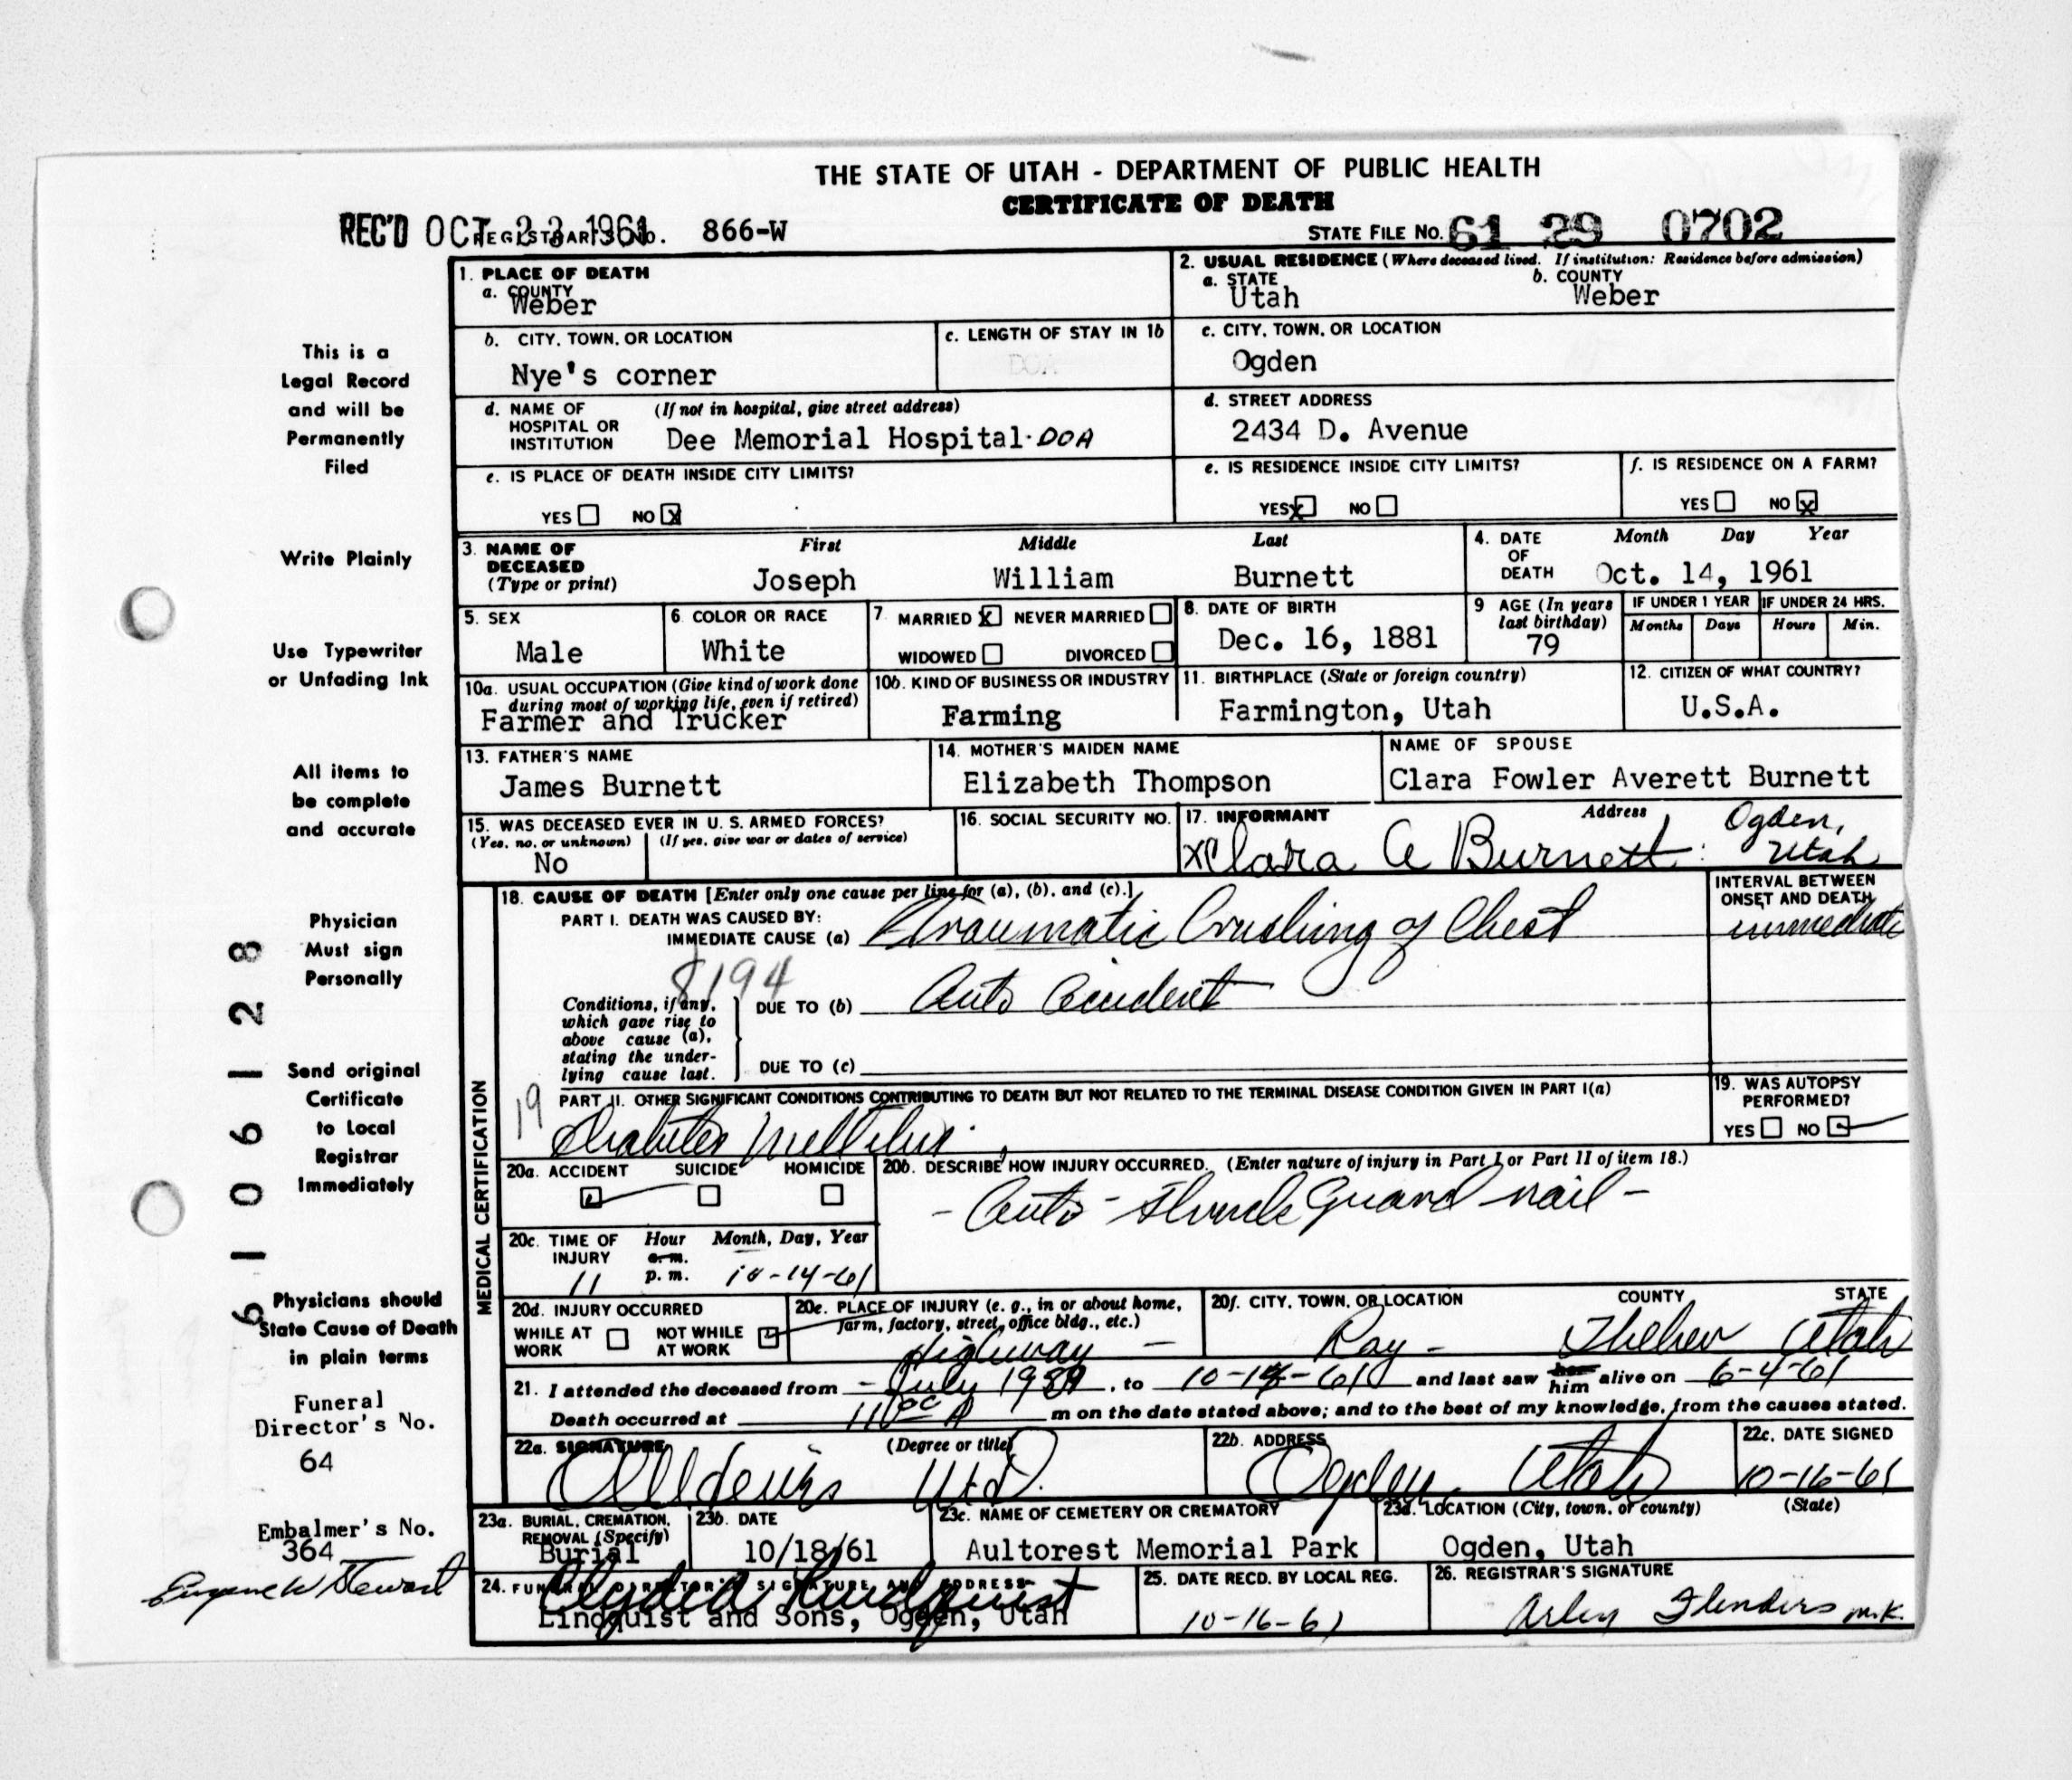 THE STATE OF UTAH - DEPARTMENT OF PUBLIC HEALTH
CERTIFICATE OF DEATH
REC'D OCT 23 1961 REGISTRAR'S NO. 866-W STATE FILE NO. 61 29 0702
This is a
Legal Record
and will be
Permanently
Filed
Write Plainly
Use Typewriter
or Unfading Ink
All items to
be complete
and accurate
Physician
Must sign
Personally
Send original
Certificate
to Local
Registrar
Immediately
Physicians should
State Cause of Death
in plain terms
Funeral
Director's No.
64
Embalmer's No.
364
Eugene W Stewart
61061128
1. PLACE OF DEATH
a. COUNTY
Weber
2. USUAL RESIDENCE (Where deceased lived. If institution: Residence before admission)
a. STATE b. COUNTY
Utah Weber
b. CITY, TOWN, OR LOCATION
Nye's corner
c. LENGTH OF STAY IN 1b
DOA
c. CITY, TOWN, OR LOCATION
Ogden
d. NAME OF HOSPITAL OR INSTITUTION (If not in hospital, give street address)
Dee Memorial Hospital-DOA
d. STREET ADDRESS
2434 D. Avenue
e. IS PLACE OF DEATH INSIDE CITY LIMITS?
YES NO X
e. IS RESIDENCE INSIDE CITY LIMITS?
YES X NO
f. IS RESIDENCE ON A FARM?
YES NO X
3. NAME OF DECEASED (Type or print) First Middle Last
Joseph William Burnett
4. DATE OF DEATH Month Day Year
Oct. 14, 1961
5. SEX
Male
6. COLOR OR RACE
White
7. MARRIED X NEVER MARRIED
WIDOWED DIVORCED
8. DATE OF BIRTH
Dec. 16, 1881
9 AGE (In years last birthday)
79
IF UNDER 1 YEAR IF UNDER 24 HRS.
Months Days Hours Min.
10a. USUAL OCCUPATION (Give kind of work done during most of working life, even if retired)
Farmer and Trucker
10b. KIND OF BUSINESS OR INDUSTRY
Farming
11. BIRTHPLACE (State or foreign country)
Farmington, Utah
12. CITIZEN OF WHAT COUNTRY?
U.S.A.
13. FATHER'S NAME
James Burnett
14. MOTHER'S MAIDEN NAME
Elizabeth Thompson
NAME OF SPOUSE
Clara Fowler Averett Burnett
15. WAS DECEASED EVER IN U. S. ARMED FORCES?
(Yes, no, or unknown) (If yes, give war or dates of service)
No
16. SOCIAL SECURITY NO.
17. INFORMANT Address
X Clara A Burnett Ogden, Utah
MEDICAL CERTIFICATION
18. CAUSE OF DEATH [Enter only one cause per line for (a), (b), and (c).]
PART I. DEATH WAS CAUSED BY:
IMMEDIATE CAUSE (a) Traumatic Crushing of Chest
INTERVAL BETWEEN ONSET AND DEATH
immediate
8194
Conditions, if any, which gave rise to above cause (a), stating the underlying cause last.
DUE TO (b) Auto Accident
DUE TO (c)
19
PART II. OTHER SIGNIFICANT CONDITIONS CONTRIBUTING TO DEATH BUT NOT RELATED TO THE TERMINAL DISEASE CONDITION GIVEN IN PART I(a)
Diabetes Mellitus
19. WAS AUTOPSY PERFORMED?
YES NO
20a. ACCIDENT SUICIDE HOMICIDE
20b. DESCRIBE HOW INJURY OCCURRED. (Enter nature of injury in Part I or Part II of item 18.)
- Auto - Struck Guard rail -
20c. TIME OF INJURY Hour a.m. p.m. Month, Day, Year
11 10-14-61
20d. INJURY OCCURRED
WHILE AT WORK NOT WHILE AT WORK
20e. PLACE OF INJURY (e. g., in or about home, farm, factory, street, office bldg., etc.)
Highway -
20f. CITY, TOWN, OR LOCATION COUNTY STATE
Roy - Weber Utah
21. I attended the deceased from - July 1939, to 10-14-61 and last saw her him alive on 6-4-61
Death occurred at 11 00 A m on the date stated above; and to the best of my knowledge, from the causes stated.
22a. SIGNATURE (Degree or title)
M.D.
22b. ADDRESS
Ogden Utah
22c. DATE SIGNED
10-16-61
23a. BURIAL, CREMATION, REMOVAL (Specify)
Burial
23b. DATE
10/18/61
23c. NAME OF CEMETERY OR CREMATORY
Aultorest Memorial Park
23d. LOCATION (City, town, or county) (State)
Ogden, Utah
24. FUNERAL DIRECTOR'S SIGNATURE AND ADDRESS
Clyde A Lindquist
Lindquist and Sons, Ogden, Utah
25. DATE RECD. BY LOCAL REG.
10-16-61
26. REGISTRAR'S SIGNATURE
Arley Flinders m.k.